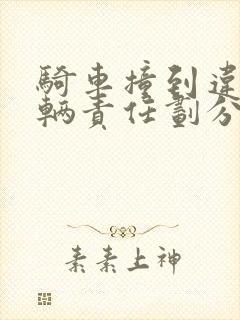 騎車撞到違
輛責任劃分
素素上神